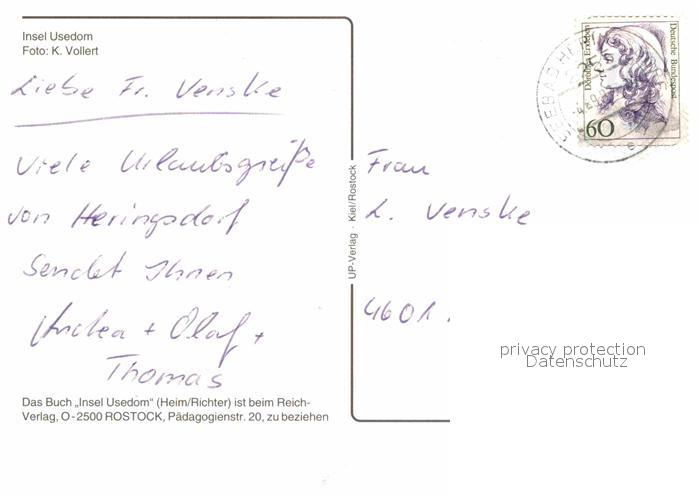 Insel Usedom
Foto: K. Vollert
Liebe Fr. Venske
Viele Urlaubsgrüße
von Heringsdorf
Sendet Ihnen
Andrea + Olaf +
Thomas
Das Buch „Insel Usedom“ (Heim/Richter) ist beim Reich-
Verlag, O-2500 ROSTOCK, Pädagogienstr. 20, zu beziehen
UP-Verlag · Kiel/Rostock
Frau
L. Venske
4601.
privacy protection
Datenschutz
Dorothea Erxleben
Deutsche Bundespost
60
SEEBAD HE
e